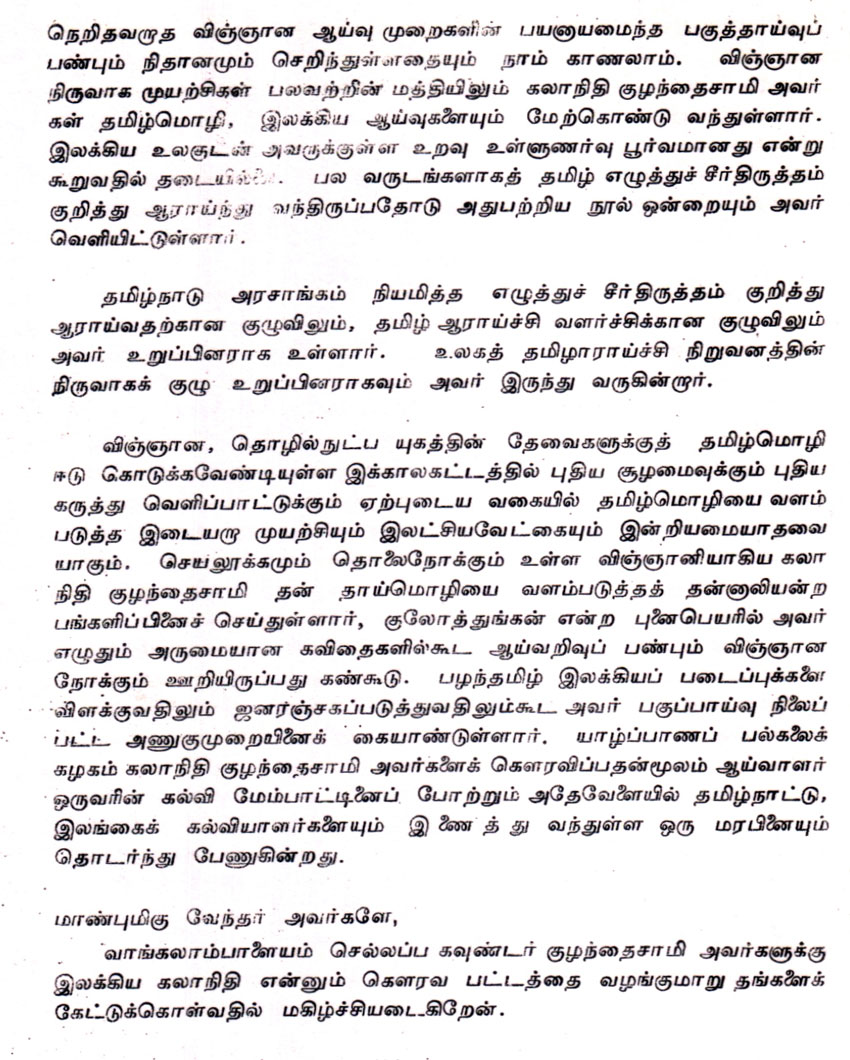 நெறிதவறாத விஞ்ஞான ஆய்வு முறைகளின் பயனாயமைந்த பகுத்தாய்வுப்
பண்பும் நிதானமும் செறிந்துள்ளதையும் நாம் காணலாம். விஞ்ஞான
நிருவாக முயற்சிகள் பலவற்றின் மத்தியிலும் கலாநிதி குழந்தைசாமி அவர்
கள் தமிழ்மொழி, இலக்கிய ஆய்வுகளையும் மேற்கொண்டு வந்துள்ளார்.
இலக்கிய உலகுடன் அவருக்குள்ள உறவு உள்ளுணர்வு பூர்வமானது என்று
கூறுவதில் தடையில்லை. பல வருடங்களாகத் தமிழ் எழுத்துச் சீர்திருத்தம்
குறித்து ஆராய்ந்து வந்திருப்பதோடு அதுபற்றிய நூல் ஒன்றையும் அவர்
வெளியிட்டுள்ளார்.
தமிழ்நாடு அரசாங்கம் நியமித்த எழுத்துச் சீர்திருத்தம் குறித்து
ஆராய்வதற்கான குழுவிலும், தமிழ் ஆராய்ச்சி வளர்ச்சிக்கான குழுவிலும்
அவர் உறுப்பினராக உள்ளார். உலகத் தமிழாராய்ச்சி நிறுவனத்தின்
நிருவாகக் குழு உறுப்பினராகவும் அவர் இருந்து வருகின்றார்.
விஞ்ஞான, தொழில்நுட்ப யுகத்தின் தேவைகளுக்குத் தமிழ்மொழி
ஈடு கொடுக்கவேண்டியுள்ள இக்காலகட்டத்தில் புதிய சூழமைவுக்கும் புதிய
கருத்து வெளிப்பாட்டுக்கும் ஏற்புடைய வகையில் தமிழ்மொழியை வளம்
படுத்த இடையறா முயற்சியும் இலட்சியவேட்கையும் இன்றியமையாதவை
யாகும். செயலூக்கமும் தொலைநோக்கும் உள்ள விஞ்ஞானியாகிய கலா
நிதி குழந்தைசாமி தன் தாய்மொழியை வளம்படுத்தத் தன்னாலியன்ற
பங்களிப்பினைச் செய்துள்ளார், குலோத்துங்கன் என்ற புனைபெயரில் அவர்
எழுதும் அருமையான கவிதைகளில்கூட ஆய்வறிவுப் பண்பும் விஞ்ஞான
நோக்கும் ஊறியிருப்பது கண்கூடு. பழந்தமிழ் இலக்கியப் படைப்புக்களை
விளக்குவதிலும் ஜனரஞ்சகப்படுத்துவதிலும்கூட அவர் பகுப்பாய்வு நிலைப்
பட்ட அணுகுமுறையினைக் கையாண்டுள்ளார். யாழ்ப்பாணப் பல்கலைக்
கழகம் கலாநிதி குழந்தைசாமி அவர்களைக் கௌரவிப்பதன்மூலம் ஆய்வாளர்
ஒருவரின் கல்வி மேம்பாட்டினைப் போற்றும் அதேவேளையில் தமிழ்நாட்டு,
இலங்கைக் கல்வியாளர்களையும் இணைத்து வந்துள்ள ஒரு மரபினையும்
தொடர்ந்து பேணுகின்றது.
மாண்புமிகு வேந்தர் அவர்களே,
வாங்கலாம்பாளையம் செல்லப்ப கவுண்டர் குழந்தைசாமி அவர்களுக்கு
இலக்கிய கலாநிதி என்னும் கௌரவ பட்டத்தை வழங்குமாறு தங்களைக்
கேட்டுக்கொள்வதில் மகிழ்ச்சியடைகிறேன்.